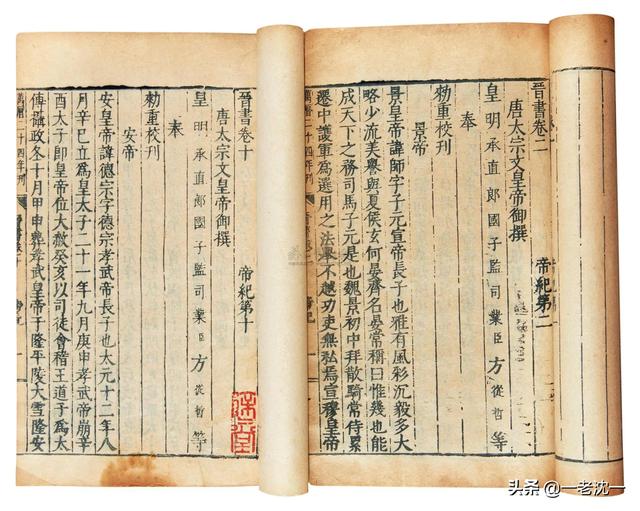 晉書卷二
唐太宗文皇帝御撰
帝紀第二
皇明承直郎國子監司業臣方從哲等
奉
勅重校刊
景帝
景皇帝諱師字子元宣帝長子也雅有風彩沉毅多大
略少流美譽與夏侯玄何晏齊名晏常稱曰惟幾也能
成天下之務司馬子元是也魏景初中拜散騎常侍累
遷中護軍為選用之法舉不越功吏無私焉宣穆皇帝
萬曆二十四年刊
晉書卷十
唐太宗文皇帝御撰
帝紀第十
皇明承直郎國子監司業臣方從哲等
奉
勅重校刊
安帝
安皇帝諱德宗字德宗孝武帝長子也太元十二年八
月辛巳立為皇太子二十一年九月庚申孝武帝崩辛
酉太子即皇帝位大赦癸亥以司徒會稽王道子為太
傅攝政冬十月甲申葬孝武皇帝于隆平陵大雪隆安
萬曆二十四年刊
头条@一老沈一